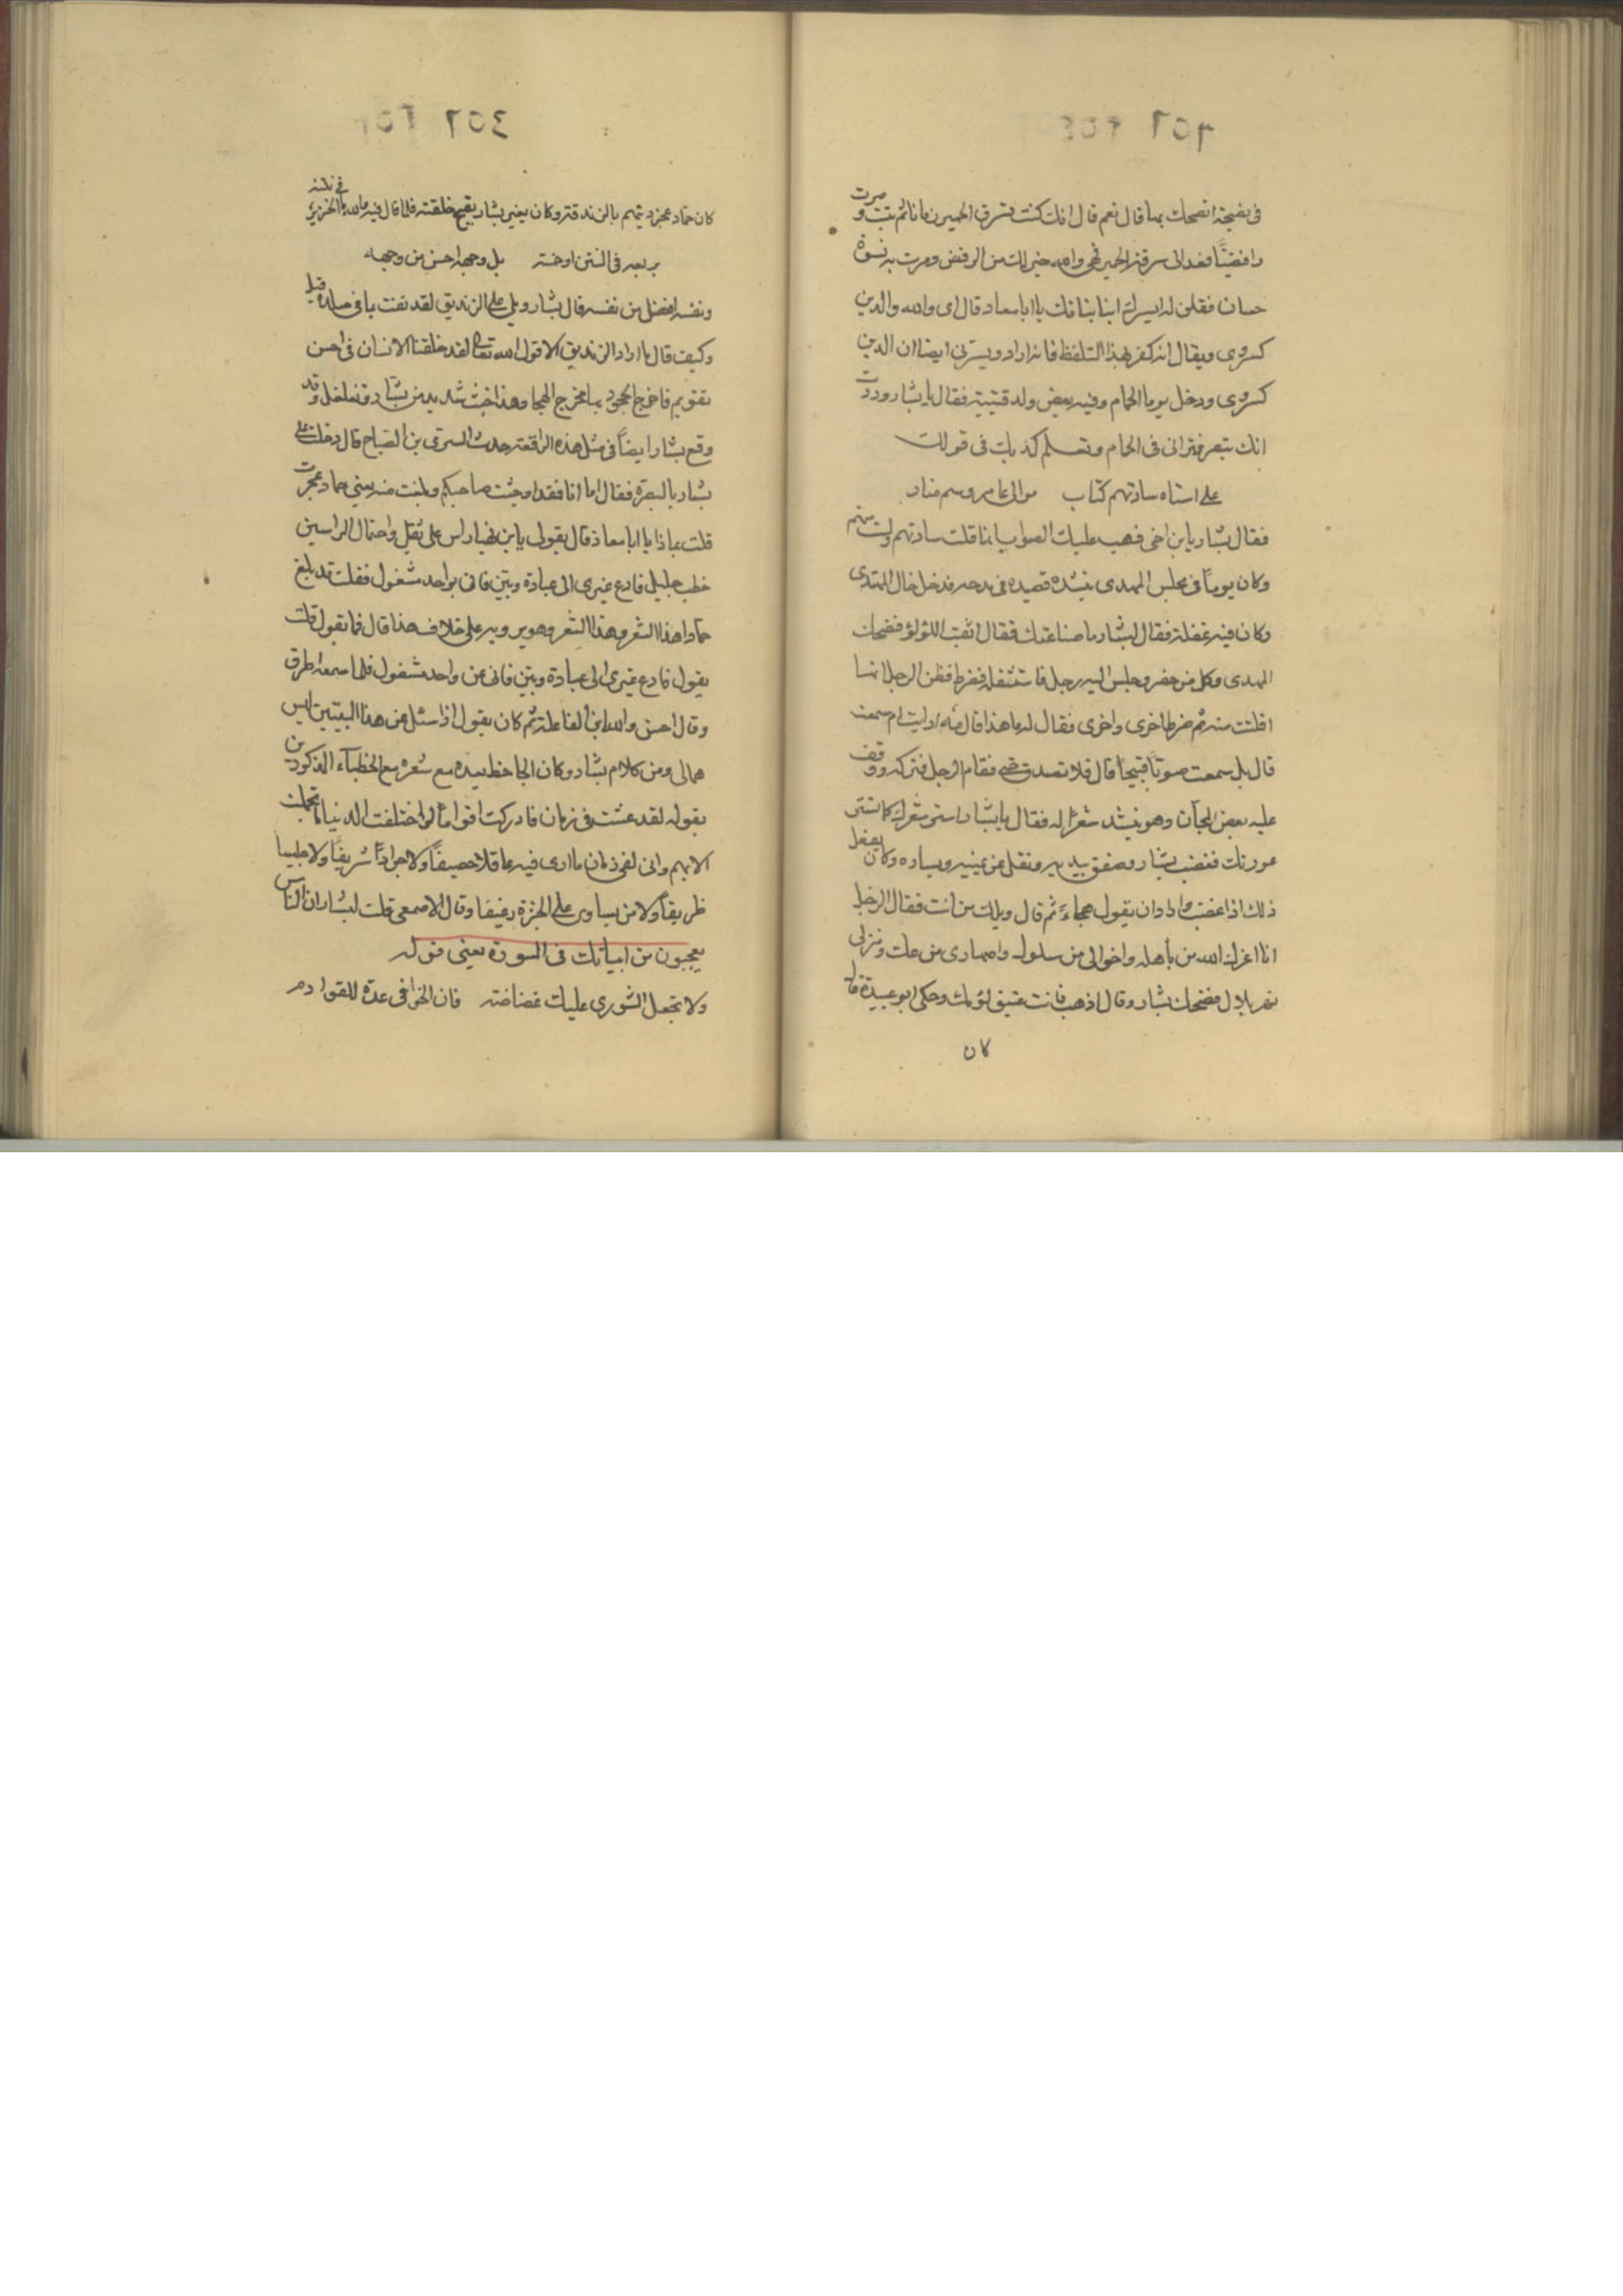 في نصيحة انصحك بها قال نعم قال انك كنت تسرق الحمير زمانا ثم تبت وصرت
رافضيّاً فعد الى سرقة الحمير فهي والله خير لك من الرفض ومرت به نسوة
حسان فقلن له ايسرك انا بناتك يا ابا معاذ قال اي والله والدين
كسروى ويقال انه كفر بهذا التلفظ فانه اراد ويسرني ايضا ان الدين
كسروى ودخل يوما الحمام وفيه بعض ولد قتيبة فقال يا بشار وددت
انك تبصر فتراني في الحمام وتعلم كذبك في قولك
على استاه سادتهم كتاب موالي عامر وسم بنار
فقال بشار يا ابن اخي ذهب عليك الصواب انما قلت سادتهم ولست منهم
وكان يوماً في مجلس المهدى ينشده قصيدة في مدحه فدخل خال المهدى
وكان فيه غفلة فقال لبشار ما صناعتك فقال اثقب اللؤلؤ فضحك
المهدى وكل من حضر وجلس اليه رجل فاستثقله فضرط فظن الرجل انها
افلتت منه ثم ضرط اخرى واخرى فقال له ما هذا قال مه ارايت ام سمعت
قال بل سمعت صوتاً قبيحاً قال فلا تصدق حتى فقام الرجل فتركه ووقف
عليه بعض المجان وهو ينشد شعرًا له فقال يا بشار استر شعرك كما تستر
عورتك فغضب بشار وصفق بيديه وتفل عن يمينه ويساره وكان يفعل
ذلك اذا غضب واراد ان يقول هجاءً ثم قال ويلك من انت فقال الرجل
انا اعزك الله من باهله واخوالي من سلول واصهارى من عك ومنزلي
نهر بلال فضحك بشار وقال اذهب فانت عتيق لؤمك وحكى ابو عبيدة قال
كان
كان حماد عجرد يتهم بالزندقة وكان يعير بشار بقبح خلقته فلما قال فيه والله ما الخنزير في نتنه
بربعه في النتن او خمسه بل وجهه احسن من وجهه
ونفسه افضل من نفسه قال بشار ويلي على الزنديق لقد نفث بما في صدره قيل
وكيف قال ما اراد الزنديق الا قول الله تعالى لقد خلقنا الانسان في احسن
تقويم فاخرج الجحود بها مخرج الهجا وهذا خبث شديد من بشار وتغلغل وقد
وقع بشار ايضاً في مثل هذه الواقعة حدث السرى بن الصباح قال دخلت على
بشار بالبصرة فقال اما انا فقد اوجعت صاحبكم وبلغت منه يعني حماد عجرد
قلت بماذا يا ابا معاذ قال بقولي يا ابن نهيا راس علي ثقيل واحتمال الراسين
خطب جليل فادع غيرى الى عبادة ربين فاني بواحد مشغول فقلت قد بلغ
حمادا هذا الشعر وهو يرويه على خلاف هذا قال فما يقول قلت
يقول فادع غيرى الى عبادة ربين فاني عن واحد مشغول فلما سمعه اطرق
وقال احسن والله ابن الفاعلة ثم كان يقول اذا سئل عن هذا البيتين ليس
هما لي ومن كلام بشار وكان الجاحظ يعده مع شعره مع الخطباء المذكورين
بقوله لقد عشت في زمان فادركت اقواماً لو اختلفت الدنيا ما تجملت
الا بهم واني لفي زمان ما ارى فيه عاقلا حصيفاً ولا جواداً شريفاً ولا جليسا
ظريفاً ولا من يساوى على الخبزة رغيفا وقال الاصمعى قلت لبشار ان الناس
يعجبون من ابياتك في المشورة يعني قوله
ولا تجعل الشورى عليك غضاضة فان الخوافي عدة للقوادم